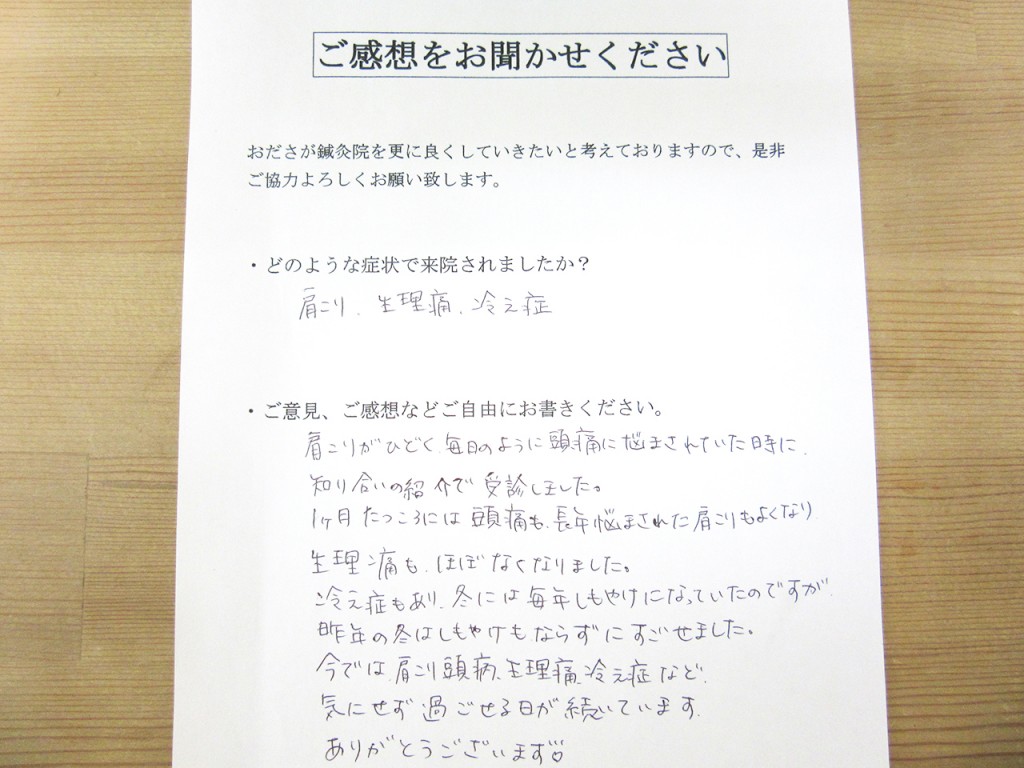 ご感想をお聞かせください
おださが鍼灸院を更に良くしていきたいと考えておりますので、是非
ご協力よろしくお願い致します。
・どのような症状で来院されましたか？
肩こり、生理痛、冷え症
・ご意見、ご感想などご自由にお書きください。
肩こりがひどく、毎日のように頭痛に悩まされていた時に、
知り合いの紹介で受診しました。
1ヶ月たつころには頭痛も、長年悩まされた肩こりもよくなり
生理痛も、ほぼなくなりました。
冷え症もあり、冬には毎年しもやけになっていたのですが、
昨年の冬はしもやけもならずにすごせました。
今では、肩こり、頭痛、生理痛、冷え症など、
気にせず過ごせる日が続いています。
ありがとうございます♡